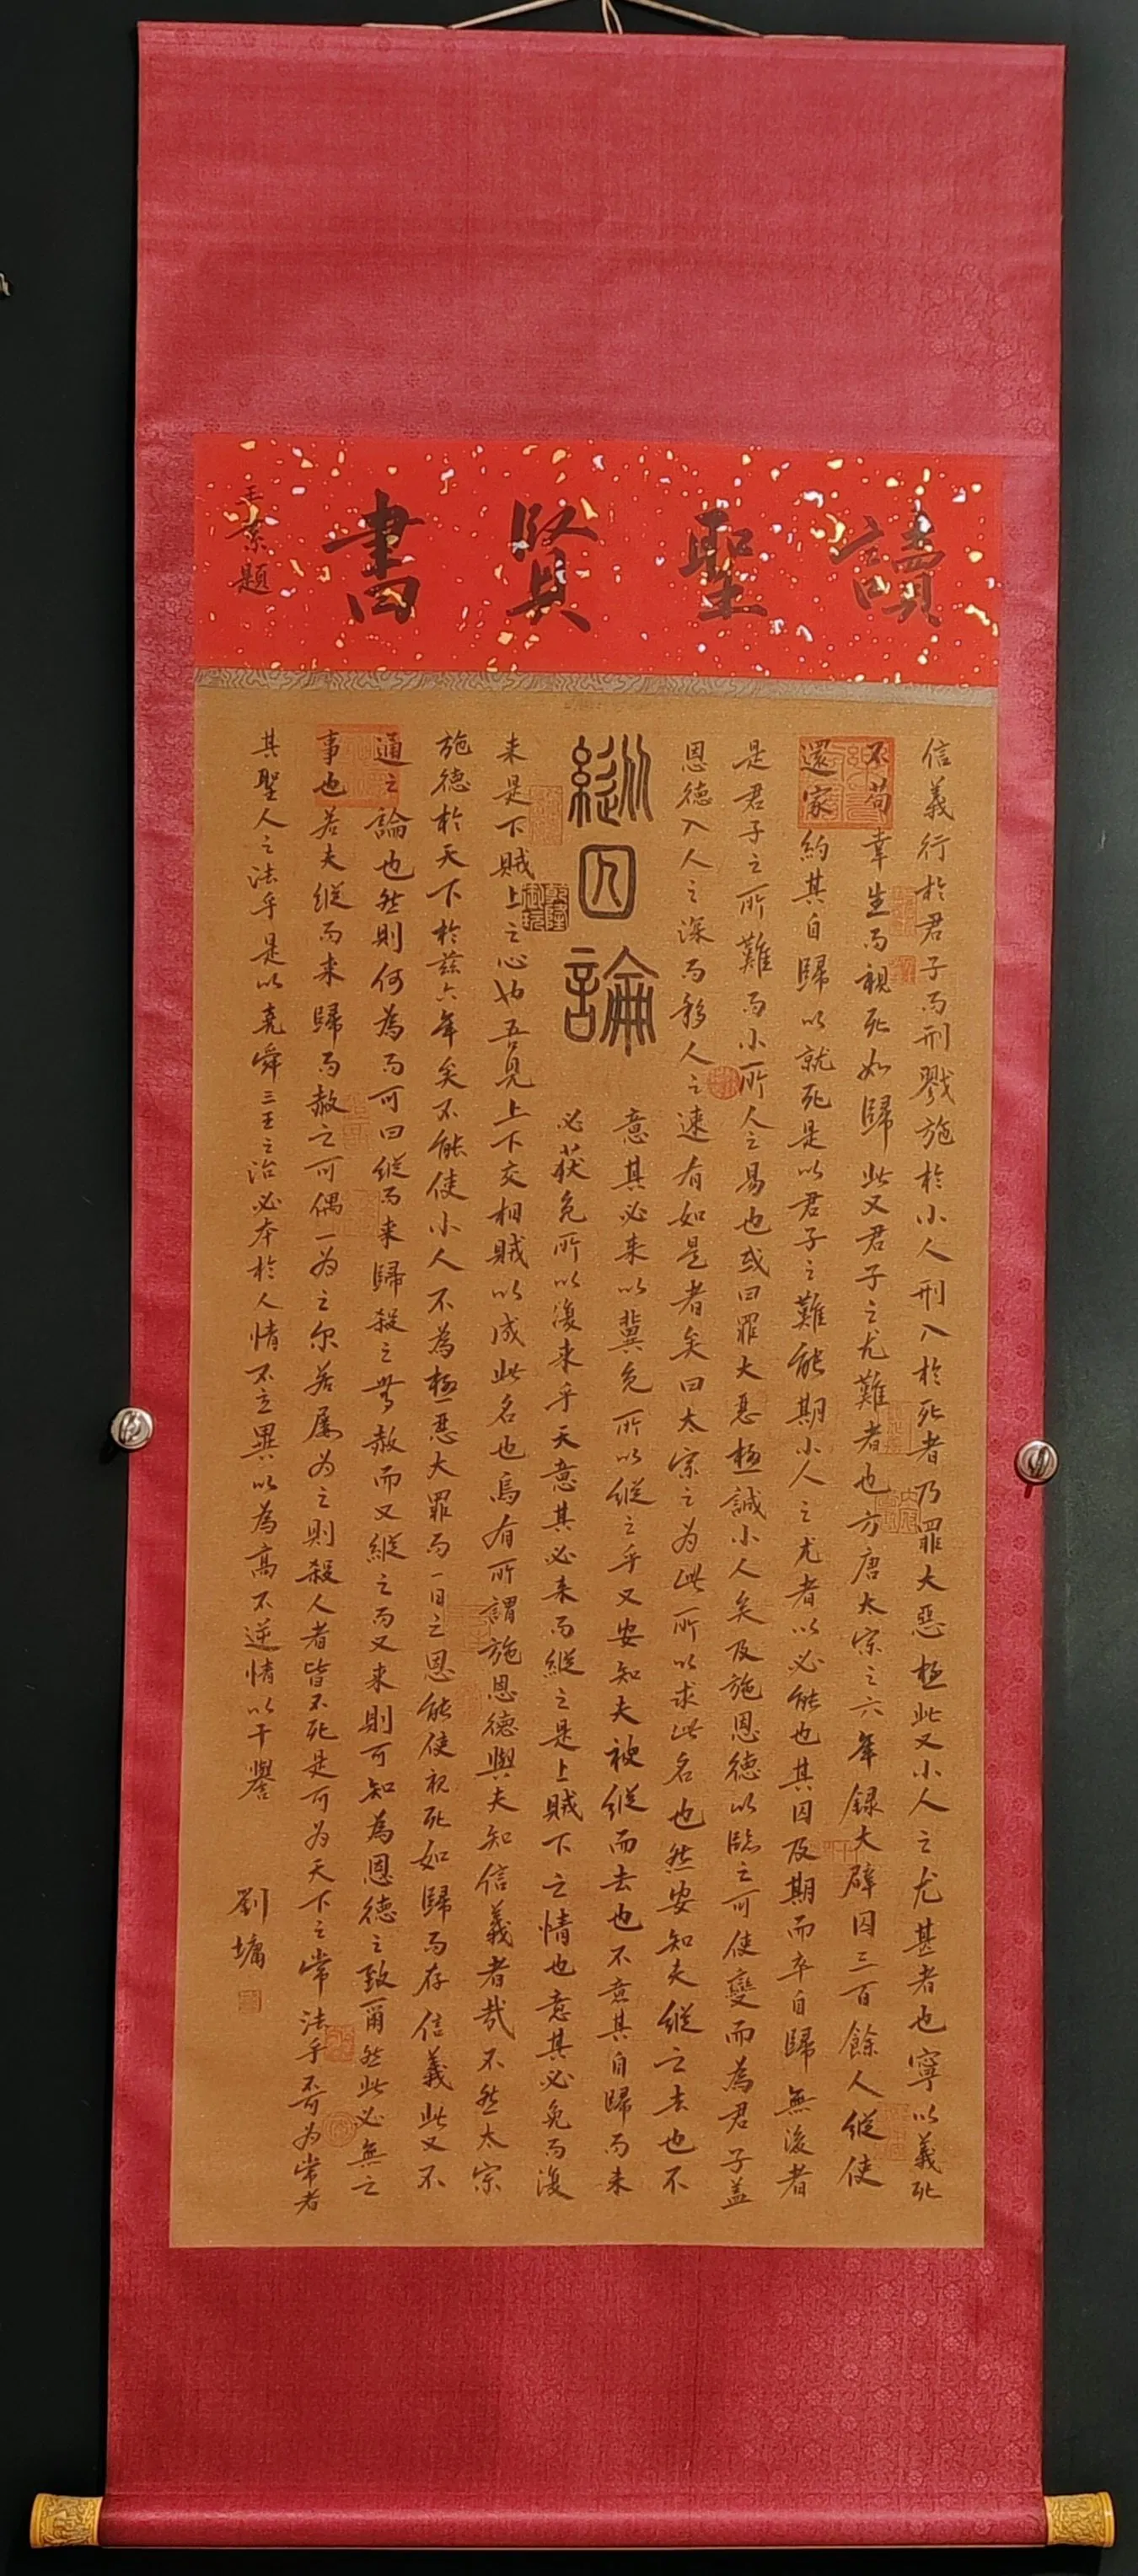 讀聖賢書
題
信義行於君子而刑戮施於小人刑入於死者乃罪大惡極此又小人之尤甚者也寧以義死
不苟幸生而視死如歸此又君子之尤難者也方唐太宗之六年録大辟囚三百餘人縱使
還家約其自歸以就死是以君子之難能期小人之尤者以必能也其囚及期而卒自歸無後者
是君子之所難而小所人之易也或曰罪大惡極誠小人矣及施恩德以臨之可使變而為君子蓋
恩德入人之深而移人之速有如是者矣曰太宗之为此所以求此名也然安知夫縱之去也不
縱囚論
意其必来以冀免所以縱之乎又安知夫被縱而去也不意其自歸而来
必获免所以復来乎夫意其必来而縱之是上賊下之情也意其必免而復
来是下賊上之心也吾見上下交相賊以成此名也烏有所謂施恩德與夫知信義者哉不然太宗
施德於天下於兹六年矣不能使小人不為極惡大罪而一日之恩能使視死如歸而存信義此又不
通之論也然則何為而可曰縱而来歸殺之無赦而又縱之而又来則可知為恩德之致爾然此必無之
事也若夫縱而来歸而赦之可偶一为之尔若屢为之則殺人者皆不死是可为天下之常法乎不可为常者
其聖人之法乎是以堯舜三王之治必本於人情不立異以為高不逆情以干譽
劉墉